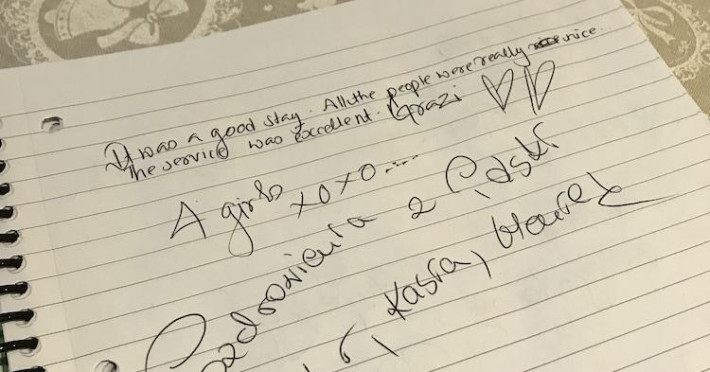 It was a good stay. All the people were really nice...
The service was excellent. Grazi
4 girls xoxo....
Pozdrowienia z
Kasia,